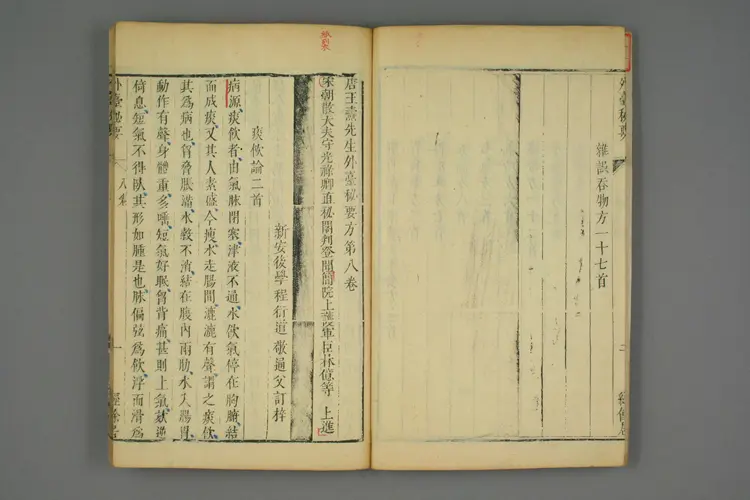 外臺秘要
雜誤吞物方一十七首
二
經餘居
唐王燾先生外臺秘要方第八卷
宋朝散大夫守光祿卿直秘閣判登聞簡院上護軍臣林億等 上進
新安後學程衍道敬通父訂梓
痰飲論二首
病源痰飲者由氣脉閉塞津液不通水飲氣停在胸腑結
而成痰又其人素盛今瘦水走腸間漉漉有聲謂之痰飲
其為病也胷脅脹滿水穀不消結在腹內兩肋水入腸胃
動作有聲身體重多唾短氣好眠胷背痛甚則上氣欬逆
倚息短氣不得臥其形如腫是也脉偏弦為飲浮而滑為
外臺秘要
八卷
一
經餘居